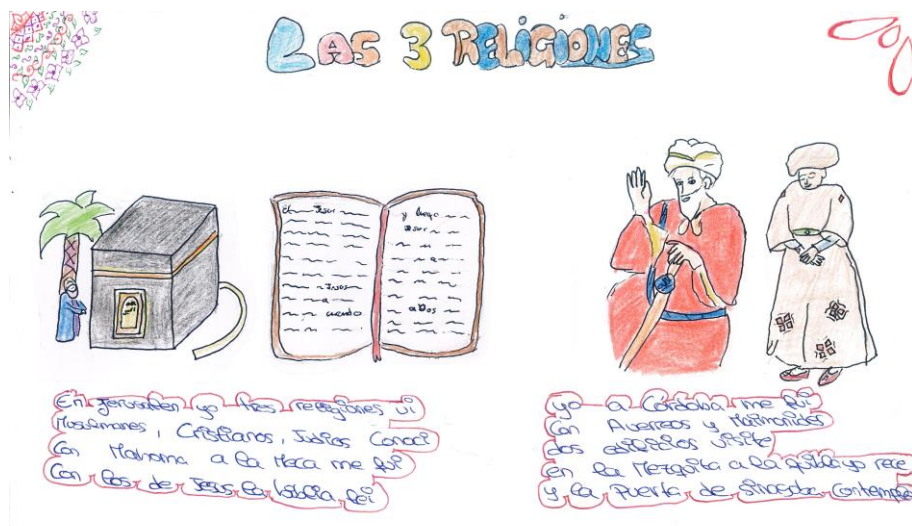 LAS 3 RELIGIONES
Jesus
y luego
Jesus
a
Jesos
a
cuando
a Dos
En Jerusalen yo tres religiones vi
Musulmanes, Cristianos, Judios Conoci
Con Mahoma a la Meca me fui
Con los de Jesus la biblia lei
yo a Córdoba me fui
Con Averroes y Maimonides
dos edificios visite
en la Mezquita a la quibla yo rece
y la Puerta de sinagoba contemple